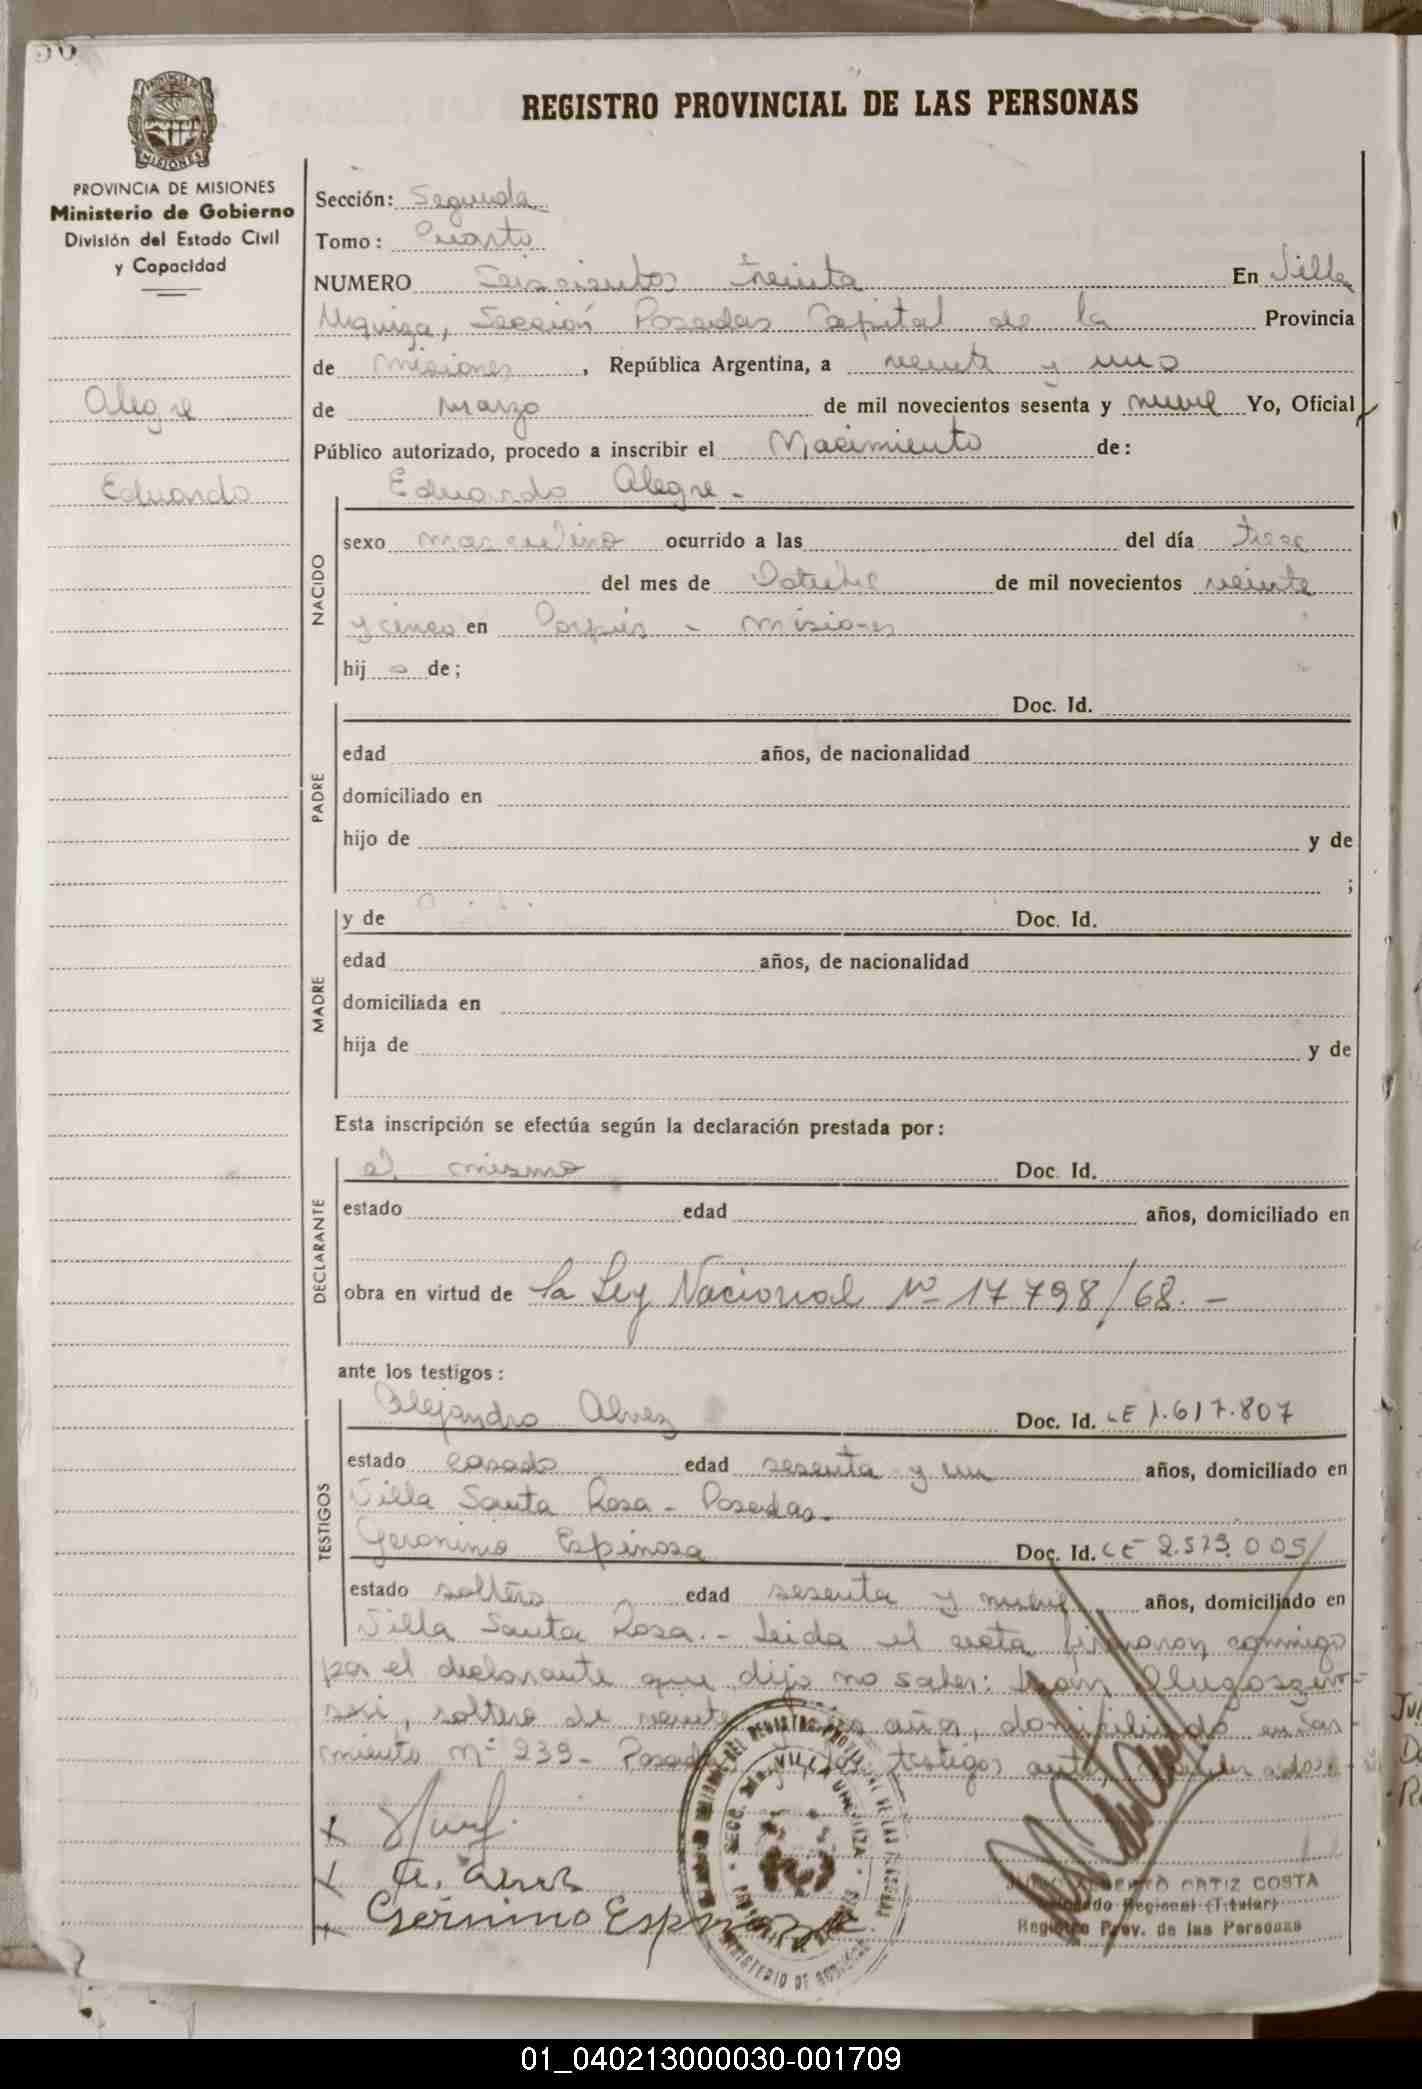 REGISTRO PROVINCIAL DE LAS PERSONAS
MISIONES
PROVINCIA DE MISIONES
Ministerio de Gobierno
División del Estado Civil
y Capacidad
Alegre
Eduardo
Sección: Segunda
Tomo: Cuarto
NUMERO Seiscientos treinta En Villa
Urquiza, Sección Posadas Capital de la Provincia
de Misiones, República Argentina, a veinte y uno
de Marzo de mil novecientos sesenta y nueve Yo, Oficial
Público autorizado, procedo a inscribir el Nacimiento de:
Eduardo Alegre.-
NACIDO
sexo masculino ocurrido a las del día trece
del mes de Octubre de mil novecientos veinte
y cinco en Corpus - Misiones
hijo de;
PADRE
Doc. Id.
edad años, de nacionalidad
domiciliado en
hijo de y de
;
MADRE
y de Doc. Id.
edad años, de nacionalidad
domiciliada en
hija de y de
Esta inscripción se efectúa según la declaración prestada por:
DECLARANTE
el mismo Doc. Id.
estado edad años, domiciliado en
obra en virtud de la Ley Nacional Nº 17798/68.-
ante los testigos:
TESTIGOS
Alejandro Alvez Doc. Id. LE 1.617.807
estado casado edad sesenta y un años, domiciliado en
Villa Santa Rosa - Posadas.
Geronimo Espinosa Doc. Id. LE 2.573.005
estado soltero edad sesenta y nueve años, domiciliado en
Villa Santa Rosa.- Leida el acta firmaron conmigo
por el declarante que dijo no saber: Juan
soltero de veinte años, domiciliado en Sar-
miento Nº 239 - Posadas testigos
A. Alvez
Gerónimo Espinoza
SECC. 2da. VILLA URQUIZA
MINISTERIO DE GOBIERNO
JULIO ALBERTO ORTIZ COSTA
Delegado Regional (Titular)
Registro Prov. de las Personas
01_040213000030-001709